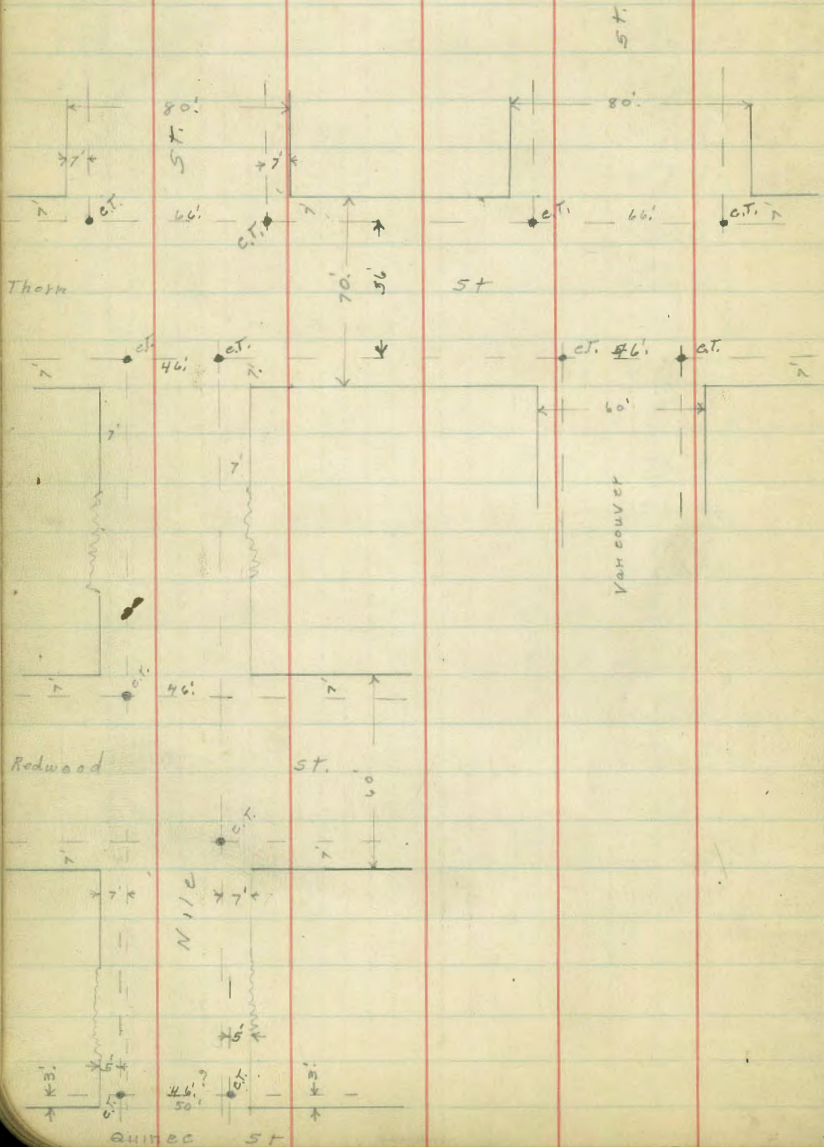 St.
80'. 80'.
St.
7' 7'
7' C.T. 66'. C.T. 7' C.T. 66'. C.T. 7'
Thorn 70'. 56' St
7' C.T. 46'. C.T. 7'. C.T. 46'. C.T. 7'
60'
7' 7'
Vancouver
7' C.T. 46'. 7'
Redwood St. 60'
7' C.T. 7'
7' Nile 7'
5' 5'
3'. C.T. 46'.? 50' C.T. 3'.
Quince St